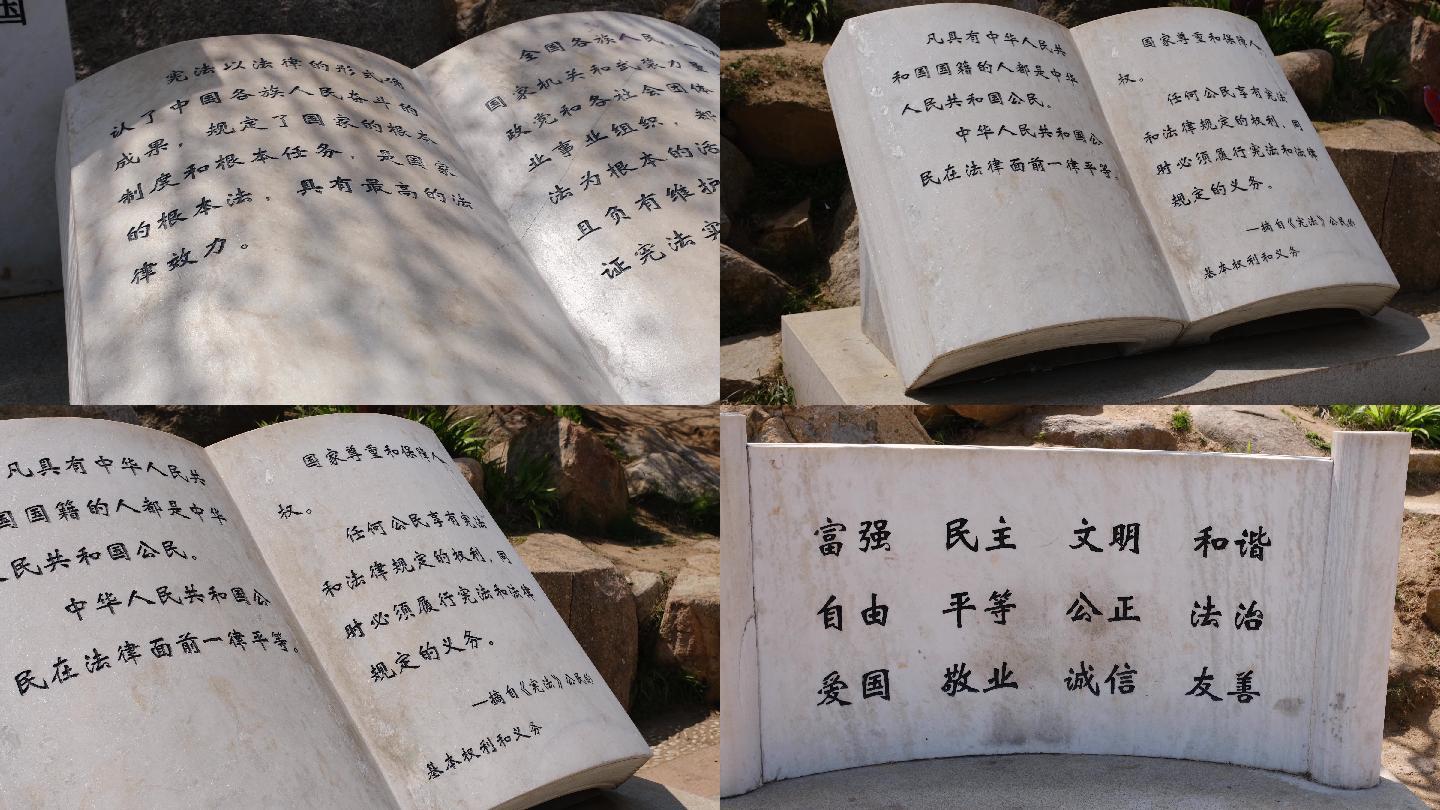 国
宪法以法律的形式确
认了中国各族人民奋斗的
成果，规定了国家的根本
制度和根本任务，是国家
的根本法，具有最高的法
律效力。
全国各族人民、一切
国家机关和武装力量
政党和各社会团体
业事业组织，都
法为根本的活
且负有维护
证宪法实
凡具有中华人民共
和国国籍的人都是中华
人民共和国公民。
中华人民共和国公
民在法律面前一律平等。
国家尊重和保障人
权。
任何公民享有宪法
和法律规定的权利，同
时必须履行宪法和法律
规定的义务。
—摘自《宪法》公民的
基本权利和义务
凡具有中华人民共
国国籍的人都是中华
人民共和国公民。
中华人民共和国公
民在法律面前一律平等。
国家尊重和保障人
权。
任何公民享有宪法
和法律规定的权利，同
时必须履行宪法和法律
规定的义务。
—摘自《宪法》公民的
基本权利和义务
富强 民主 文明 和谐
自由 平等 公正 法治
爱国 敬业 诚信 友善